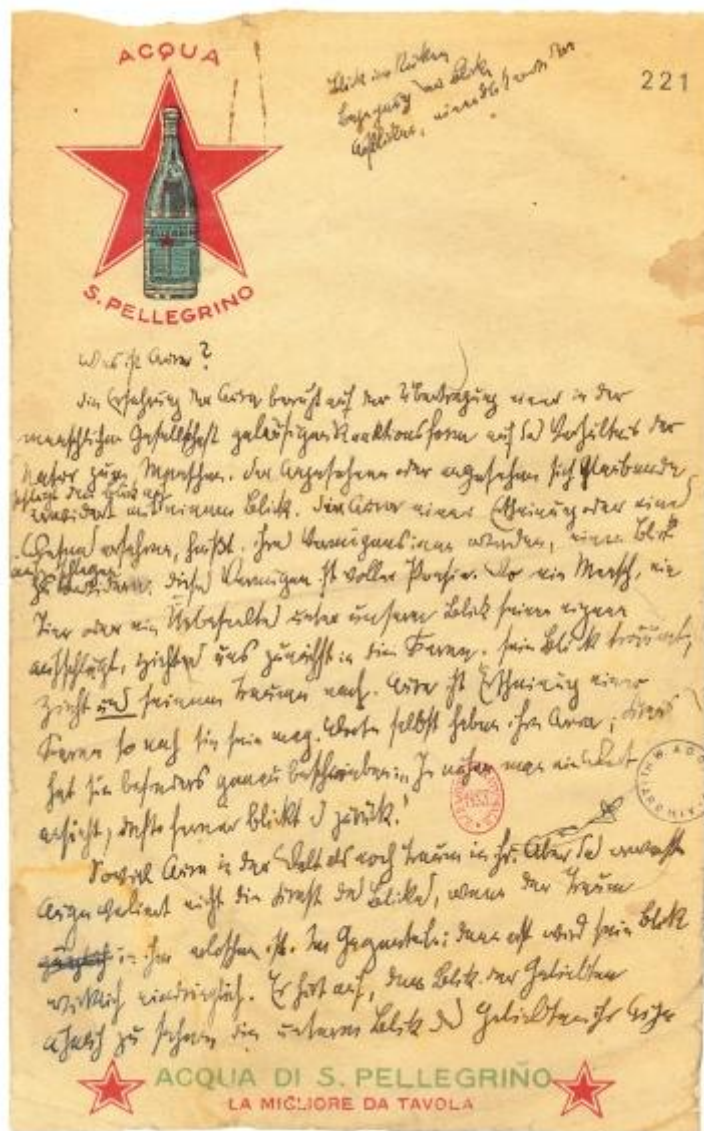 ACQUA
S. PELLEGRINO
221
Blick im Rücken
Begegnung der Blicke
Aufblicken,
Was ist Aura?
Die Erfahrung der Aura beruht auf der Übertragung einer in der
menschlichen Gesellschaft geläufigen Reaktionsform auf das Verhältnis der
Natur zum Menschen. Der Angesehene oder angesehen sich Glaubende
schlägt den Blick auf
erwidert mit einem Blick. Die Aura einer Erscheinung oder eines
Wesens erfahren, heißt, ihres Vermögens inne werden, einen Blick
aufzuschlagen
zu erwidern. Dieses Vermögen ist voller Poesie. Wo ein Mensch, ein
Tier oder ein Unbeseeltes unter unserem Blick seinen eignen
aufschlägt, zieht es uns zunächst in die Ferne. Sein Blick träumt,
zieht uns seinem Traume nach. Aura ist Erscheinung einer
Ferne so nah sie sein mag. Worte selbst haben ihre Aura; Kraus
hat sie besonders genau beschrieben: Je näher man ein Wort
ansieht, desto ferner blickt es zurück.
Soviel Aura in der Welt als noch Traum in ihr. Aber das erwachte
Auge verlernt nicht die Kunst des Blicks, wenn der Traum
in ihm erloschen ist. Im Gegenteil: dann erst wird sein Blick
wirklich eindringlich. Er hört auf, dem Blick der Geliebten
ähnlich zu sehen die unterm Blick des Geliebten ihr Auge
ACQUA DI S. PELLEGRINO
LA MIGLIORE DA TAVOLA